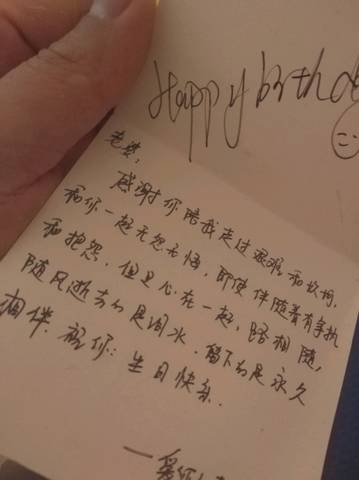 Happy birthd
老婆,
感谢你陪我走过艰难和坎坷,
和你一起无怨无悔,即使伴随着有争执
和抱怨,但是心在一起,路相随,
随风逝去的是泪水,留下的是永久
相伴.祝你:生日快乐.
——爱你